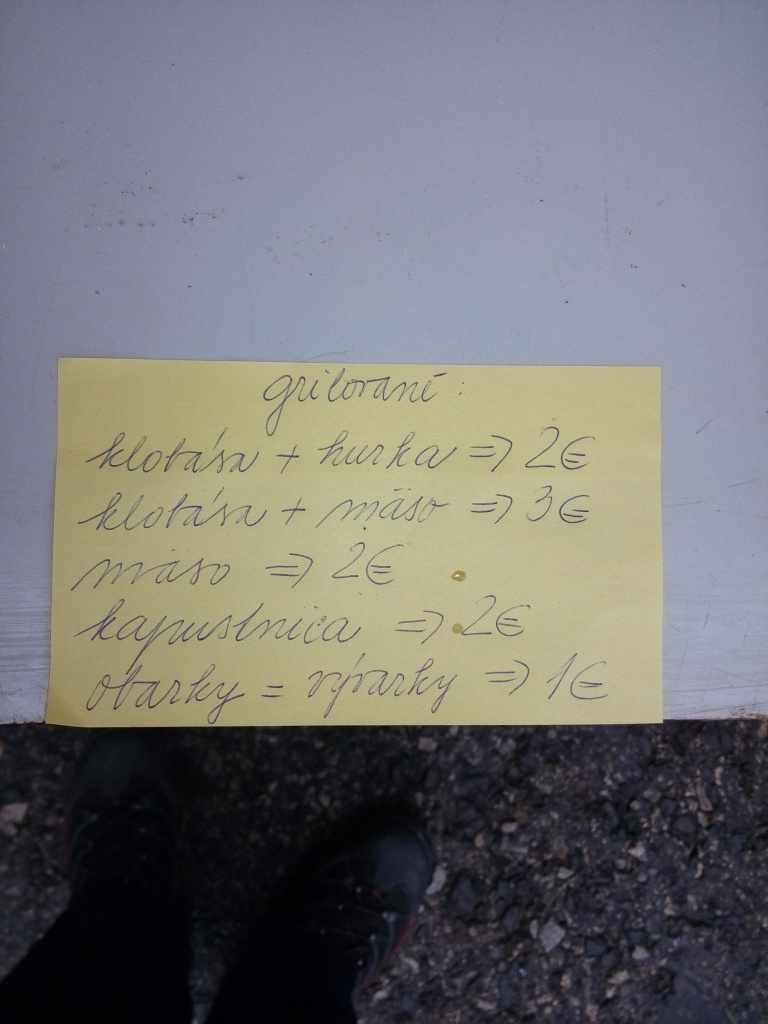 grilované :
klobása + hurka => 2€
klobása + mäso => 3€
mäso => 2€
kapustnica => 2€
obarky = vývarky => 1€